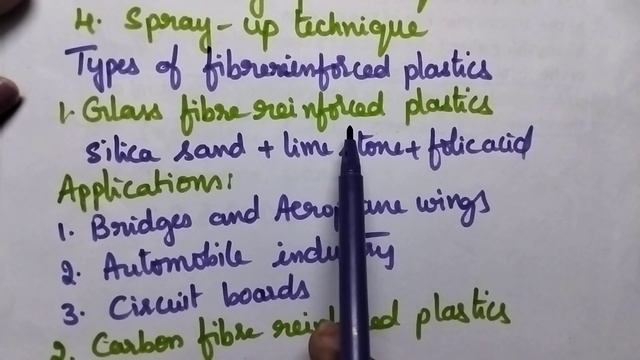 4. Spray-up technique
Types of fibrereinforced plastics
1. Glass fibre reinforced plastics
Silica sand + lime stone + folic acid
Applications:
1. Bridges and Aeroplane wings
2. Automobile industry
3. Circuit boards
2. Carbon fibre reinforced plastics